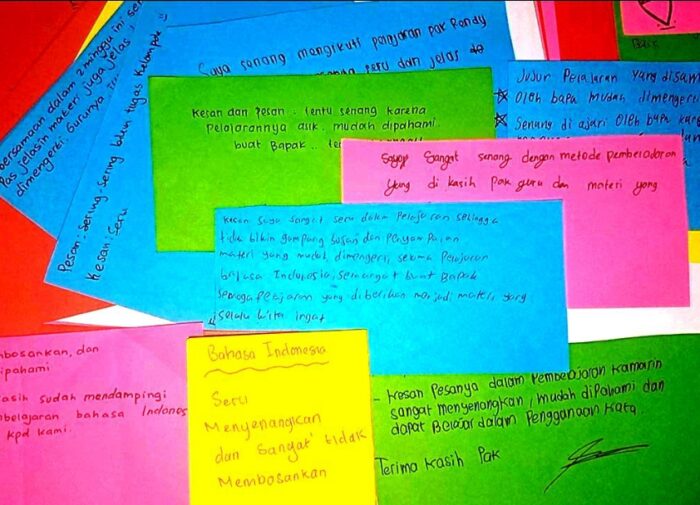 bersamaan dalam 2 minggu ini
Pas jelasin materi juga jelas,
dimengerti. Gurunya
Pesan : sering sering beri tugas kelompok
Kesan : Seru
Saya senang mengikuti pak Rendy
seru dan jelas
Kesan dan Pesan : tentu senang karena
Pelajarannya asik. mudah dipahami
buat Bapak..
Jujur Pelajaran yang
oleh bapa mudah
Senang di ajari oleh bapa
Sangat senang dengan metode
yang di kasih Pak guru dan materi yang
Kesan Saya sangat seru dalam Pelajaran sehingga
tidak bikin gampang bosan dan
materi yang mudah dimengerti, Pelajaran
bahasa Indonesia, semangat buat Bapak
Semoga Pelajaran yang diberikan menjadi materi yang
selalu kita ingat
mbosankan, dan
dipahami
kasih sudah mendampingi
bahasa
kpd kami.
Bahasa Indonesia
Seru
Menyenangkan
dan Sangat tidak
Membosankan
- Kesan Pesanya dalam Pembelajaran Kamarin
sangat menyenangkan, mudah dipahami dan
dapat Belajar dalam Penggunaan Kata.
Terima Kasih Pak